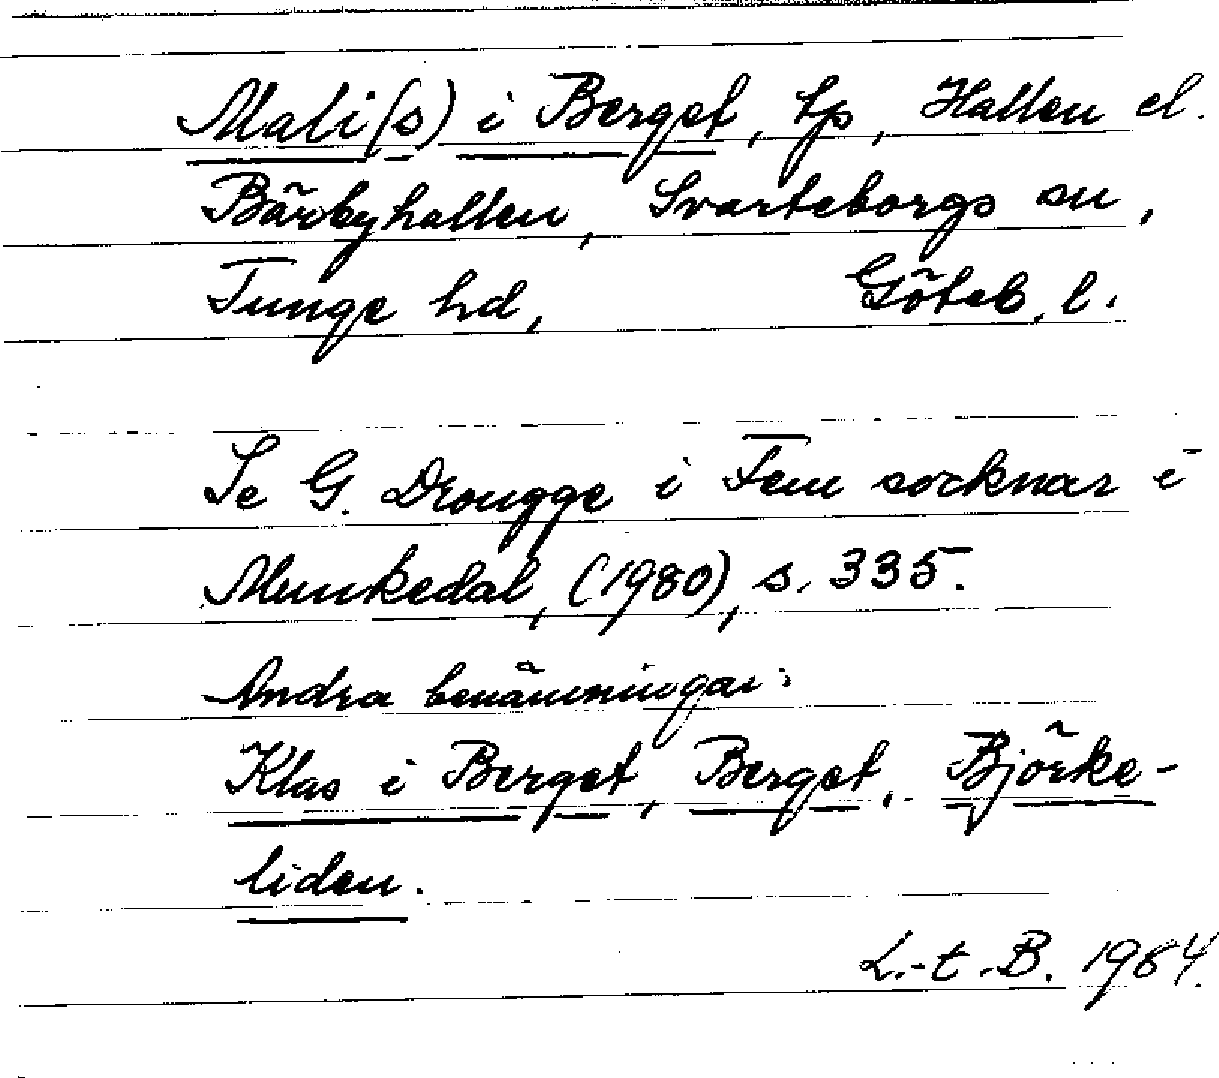 Mali(s) i Berget, tp, Hallen el.
Bärbyhallen, Svarteborgs sn,
Tunge hd, Göteb. l.
Se G. Drougge i Fem socknar i
Munkedal, (1980), s. 335.
Andra benämningar:
Klas i Berget, Berget, Björke-
liden.
L.-t. B. 1984.